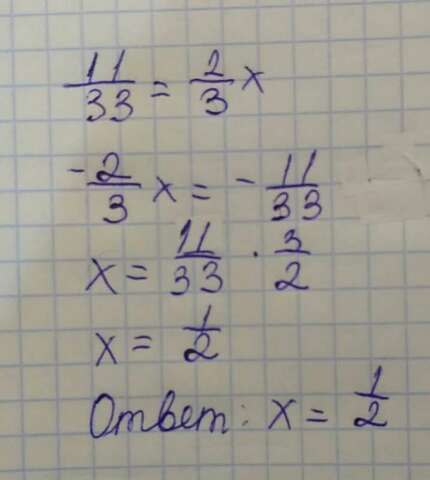 11/33 = 2/3 x
-2/3 x = - 11/33
x = 11/33 · 3/2
x = 1/2
Ответ: x = 1/2